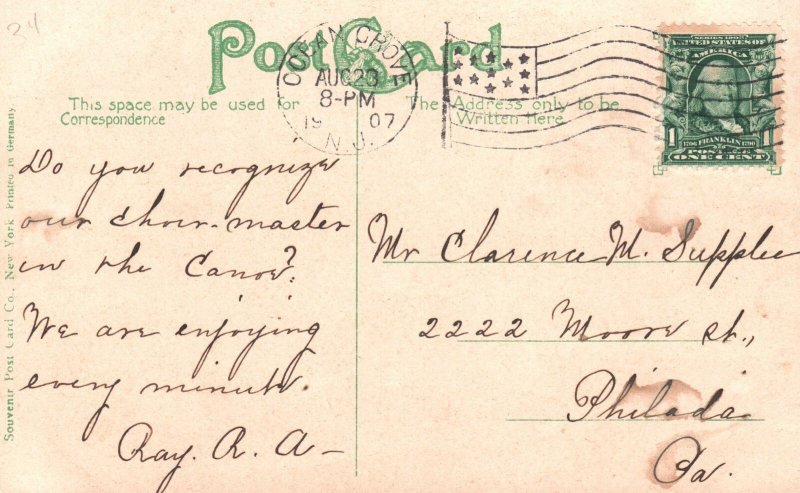 24
Post Card
OCEAN GROVE
AUG 23
8-PM
1907
N.J.
SERIES 1902
UNITED STATES OF
AMERICA
1706 FRANKLIN 1790
1 POSTAGE 1
ONE CENT
This space may be used for
Correspondence
The Address only to be
Written Here
Do you recognize
our choir-master
in the Canoe?
We are enjoying
every minute.
Ray. R. A-
Mr Clarence M. Supplee
2222 Moore st.,
Philada
Pa.
Souvenir Post Card Co., New York Printed in Germany.